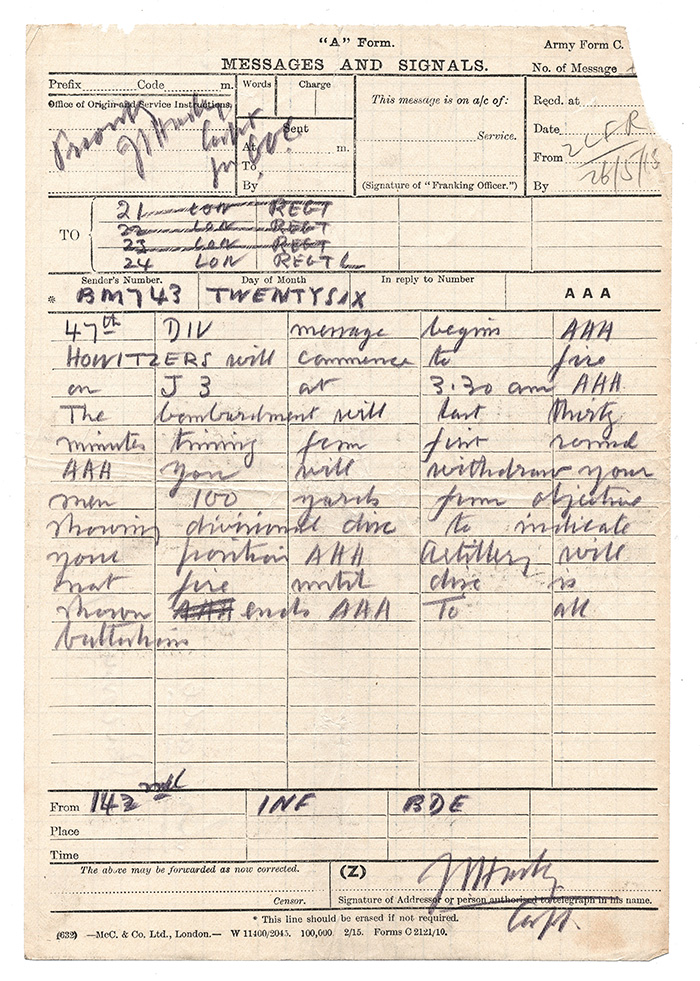 "A" Form.
Army Form C.
MESSAGES AND SIGNALS.
No. of Message
Prefix Code m.
Words Charge
This message is on a/c of:
Recd. at
Office of Origin and Service Instructions.
Priority
Capt
for GOC
Sent
At m.
To
By
Service.
(Signature of "Franking Officer.")
Date
From
By
26/5/15
TO
21 LON REGT
22 LON REGT
23 LON REGT
24 LON REGT
Sender's Number. Day of Month In reply to Number
* BM743 TWENTYSIX AAA
47th DIV message begins AAA
HOWITZERS will commence to fire
on J 3 at 3.30 am AAA
The bombardment will last thirty
minutes timing from first round
AAA you will withdraw your
men 100 yards from objective
showing divisional disc to indicate
your position AAA Artillery will
not fire until disc is
shown AAA ends AAA To all
battalions
From 142 INF BDE
Place
Time
The above may be forwarded as now corrected.
(Z)
Censor.
Signature of Addressor or person authorised to telegraph in his name.
Capt.
* This line should be erased if not required.
(632) —McC. & Co. Ltd., London.— W 11400/2045. 100,000. 2/15. Forms C 2121/10.